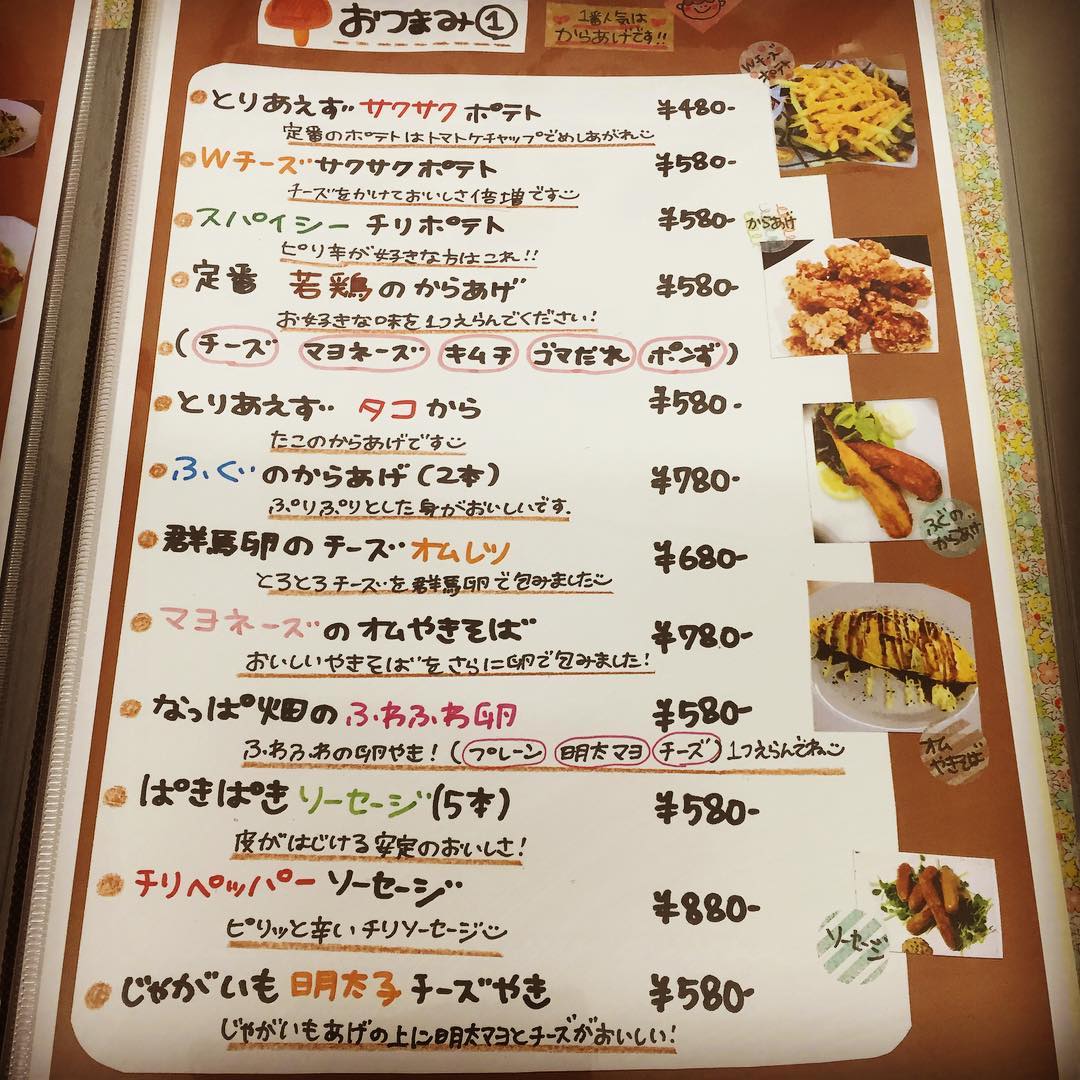 おつまみ①
1番人気は
からあげです!!
Wチーズ
ポテト
とりあえず サクサク ポテト ¥480-
定番のポテトはトマトケチャップでめしあがれ
Wチーズ サクサクポテト ¥580-
チーズをかけておいしさ倍増です
スパイシー チリポテト ¥580-
ピリ辛が好きな方はこれ!!
からあげ
定番 若鶏のからあげ ¥580-
お好きな味を1つえらんでください!
(チーズ マヨネーズ キムチ ゴマだれ ポンず)
とりあえず タコから ¥580-
たこのからあげです
ふぐのからあげ(2本) ¥780-
ぷりぷりとした身がおいしいです.
ふぐの
からあげ
群馬卵のチーズオムレツ ¥680-
とろとろチーズを群馬卵で包みました
マヨネーズのオムやきそば ¥780-
おいしいやきそばをさらに卵で包みました!
なっぱ畑のふわふわ卵 ¥580-
ふわふわの卵やき!(プレーン 明太マヨ チーズ)1つえらんでね
オム
やきそば
ぱきぱきソーセージ(5本) ¥580-
皮がはじける安定のおいしさ!
チリペッパー ソーセージ ¥880-
ピリッと辛いチリソーセージ
ソーセージ
じゃがいも 明太子 チーズやき ¥580-
じゃがいもあげの上に明太マヨとチーズがおいしい!